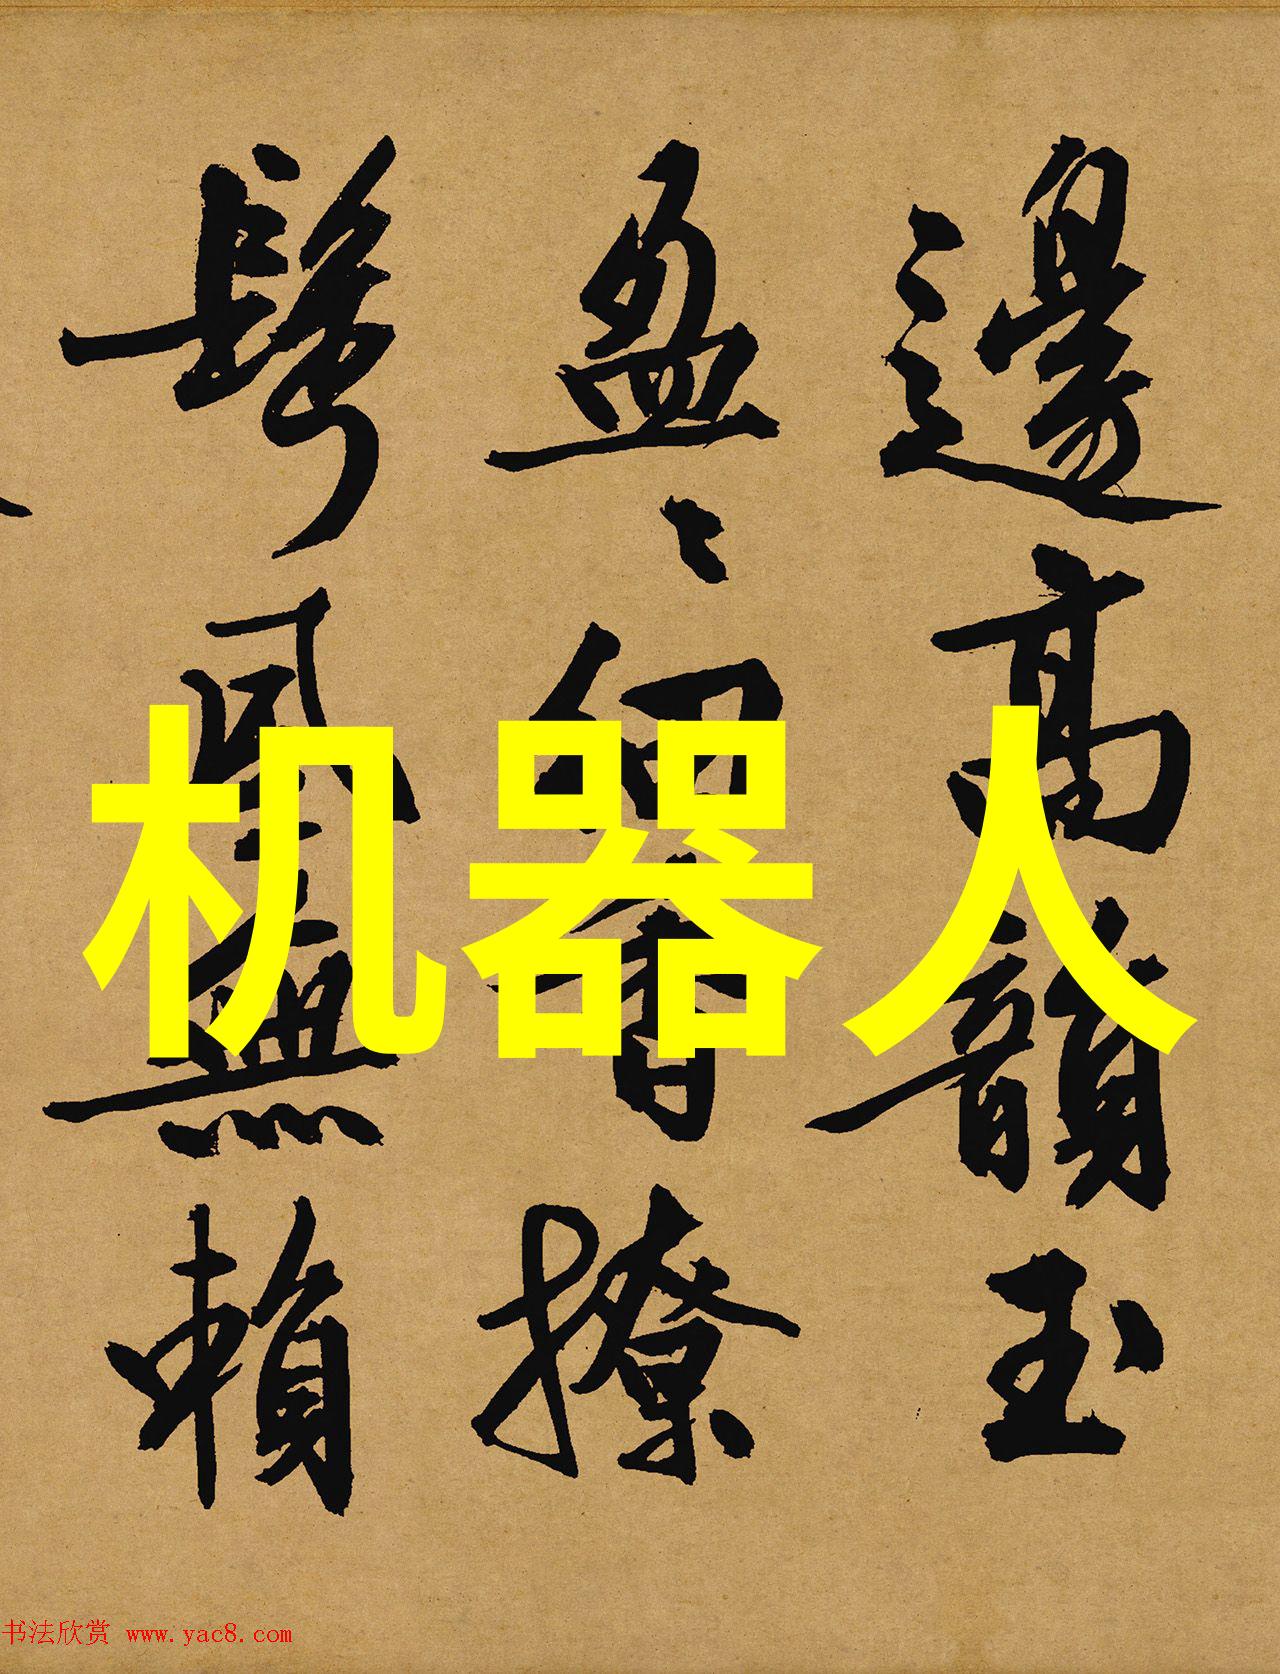 邊高韻玉
盈〻細香撩
鬢風無賴
机器人
书法欣赏 www.yac8.com